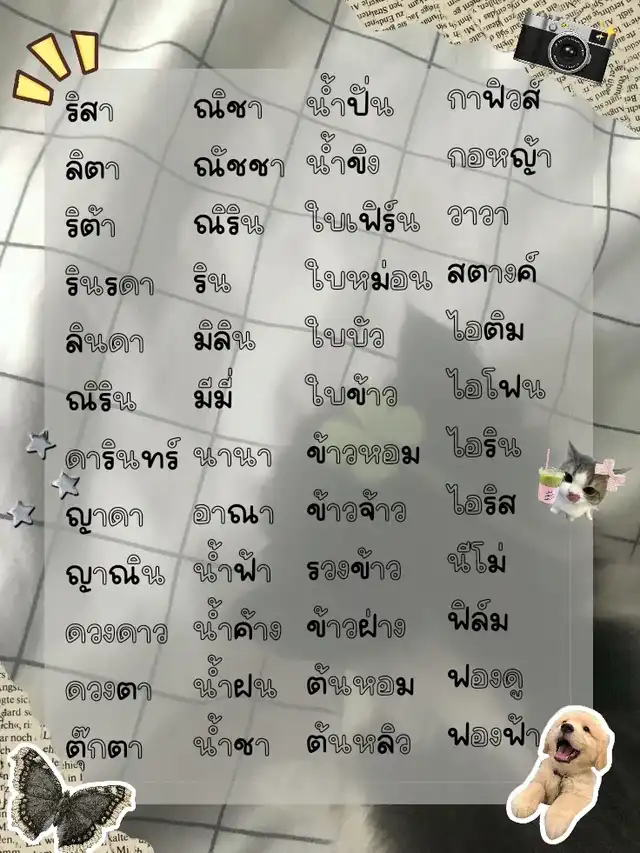 ริสา ณิชา น้ำปั่น กาฟิวส์
ลิตา ณัชชา น้ำขิง กอหญ้า
ริต้า ณิริน ใบเฟิร์น วาวา
รินรดา ริน ใบหม่อน สตางค์
ลินดา มิลิน ใบบัว ไอติม
ณิริน มีมี่ ใบข้าว ไอโฟน
ดารินทร์ นานา ข้าวหอม ไอริน
ญาดา อาณา ข้าวจ้าว ไอริส
ญาณิน น้ำฟ้า รวงข้าว นีโม่
ดวงดาว น้ำค้าง ข้าวฝ่าง ฟิล์ม
ดวงตา น้ำฝน ต้นหอม ฟองดู
ตุ๊กตา น้ำชา ต้นหลิว ฟองฟ้า